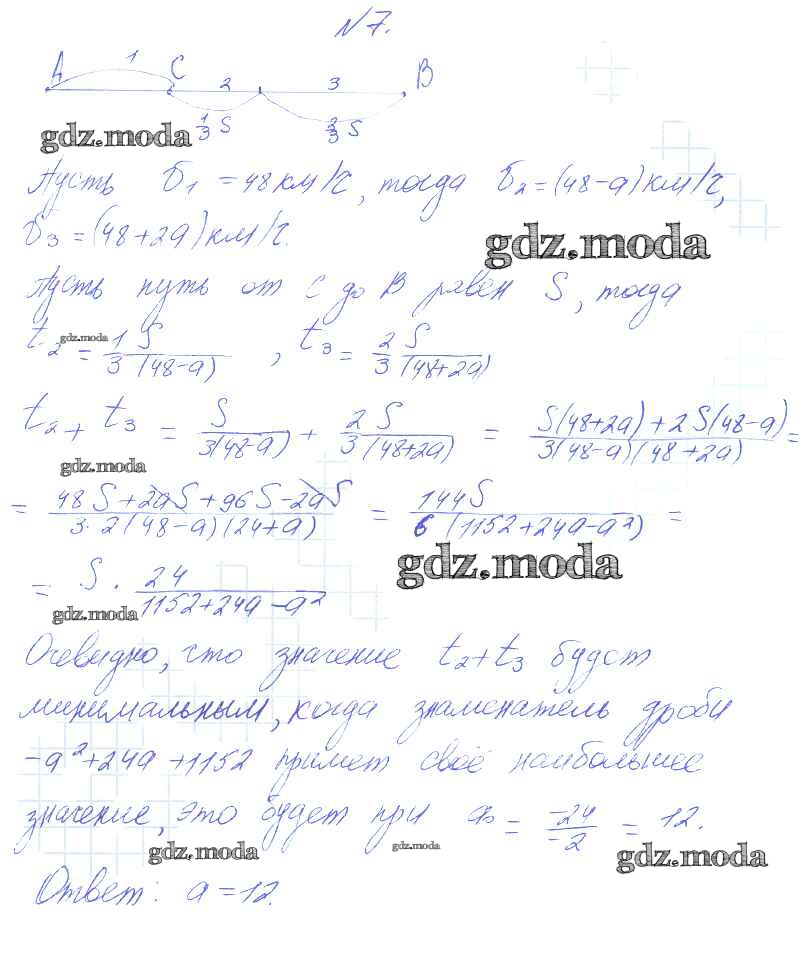 N7.
A 1 C 2 3 B
1/3 S 2/3 S
gdz.moda
Пусть v1 = 48 км/ч, тогда v2 = (48-a) км/ч,
v3 = (48+2a) км/ч.
gdz.moda
Пусть путь от C до B равен S, тогда
t2 = 1/3 S/(48-a), t3 = 2/3 S/(48+2a)
gdz.moda
t2 + t3 = S/3(48-a) + 2S/3(48+2a) = S(48+2a)+2S(48-a)/3(48-a)(48+2a) =
gdz.moda
= 48S+2aS+96S-2aS/3·2(48-a)(24+a) = 144S/6(1152+24a-a²) =
gdz.moda
= S · 24/1152+24a-a²
gdz.moda
Очевидно, что значение t2+t3 будет
минимальным, когда знаменатель дроби
-a²+24a+1152 примет своё наибольшее
значение, это будет при a0 = -24/-2 = 12.
gdz.moda gdz.moda gdz.moda
Ответ: a = 12.